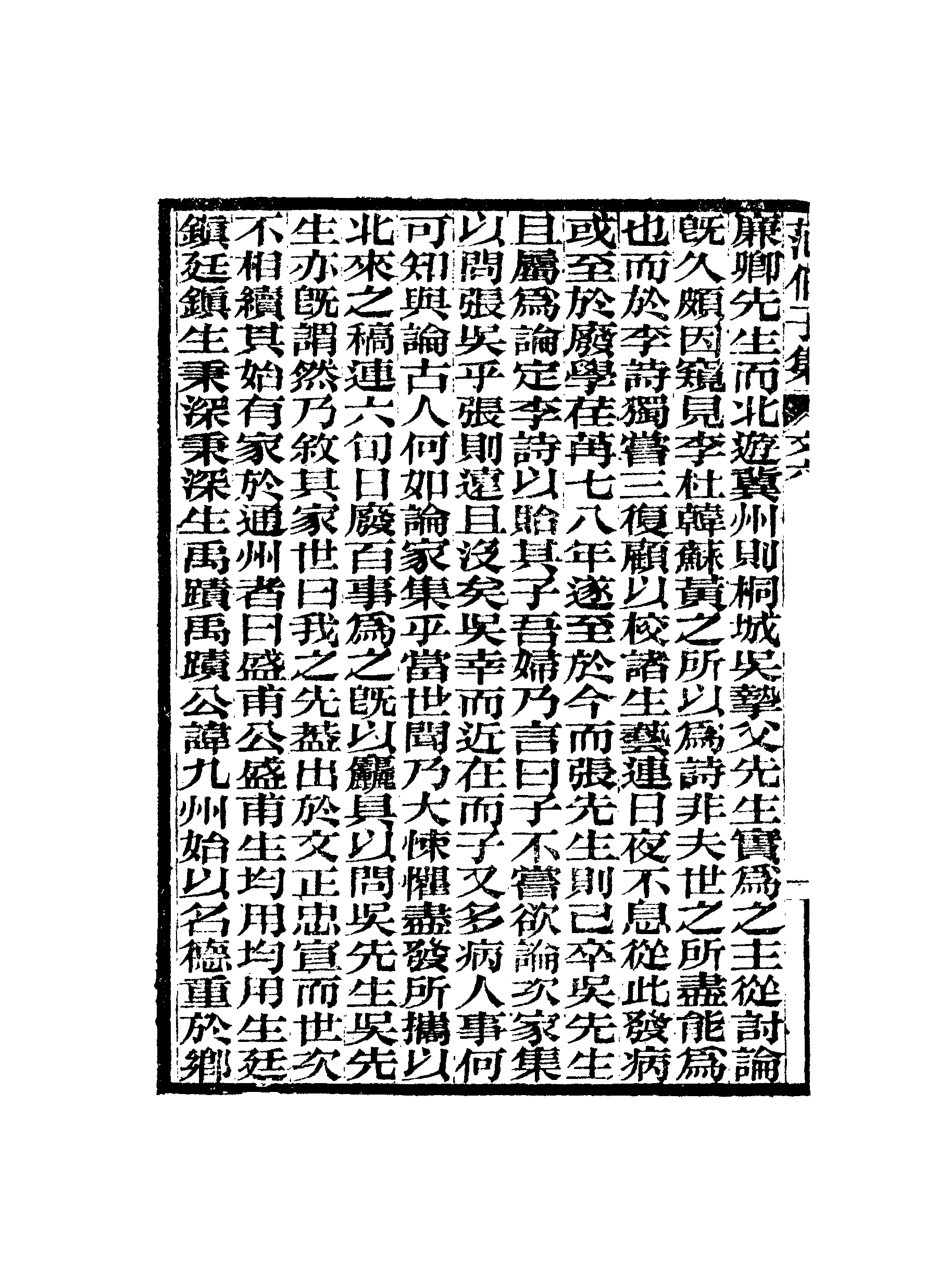 范伯子集 文六
廉卿先生而北遊冀州則桐城吳摯父先生實爲之主從討論
旣久頗因窺見李杜韓蘇黃之所以爲詩非夫世之所盡能爲
也而於李詩獨嘗三復顧以校諸生藝連日夜不息從此發病
或至於廢學荏苒七八年遂至於今而張先生則已卒吳先生
且屬爲論定李詩以貽其子吾婦乃言曰子不嘗欲論次家集
以問張吳乎張則遠且沒矣吳幸而近在而子又多病人事何
可知與論古人何如論家集乎當世聞乃大悚懼盡發所攜以
北來之稿連六旬日廢百事爲之旣以麤具以問吳先生吳先
生亦旣謂然乃敘其家世曰我之先葢出於文正忠宣而世次
不相續其始有家於通州者曰盛甫公盛甫生均用均用生廷
鎭廷鎭生秉深秉深生禹蹟禹蹟公諱九州始以名德重於鄉